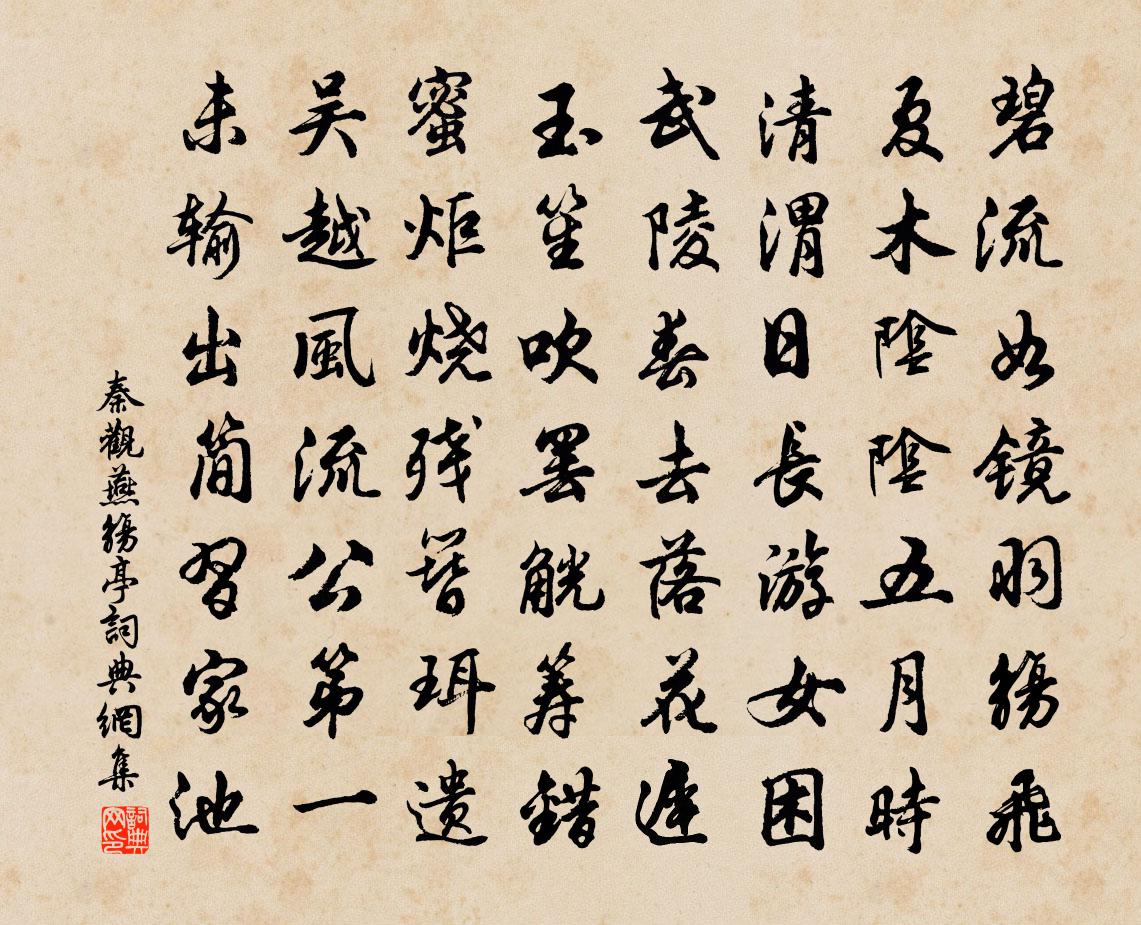 碧流如镜羽觞飛
夏木陰陰五月時
清渭日長游女困
武陵春去落花遲
玉笙吹罢觥筹錯
蜜炬烧残簪珥遗
吴越風流公第一
未输出简習家池
秦觀燕觞亭詞典網集
詞典网印